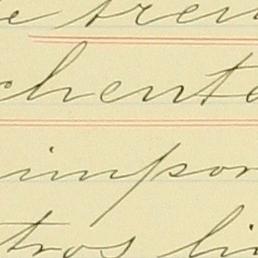 e tren
chenta
impor
tros li